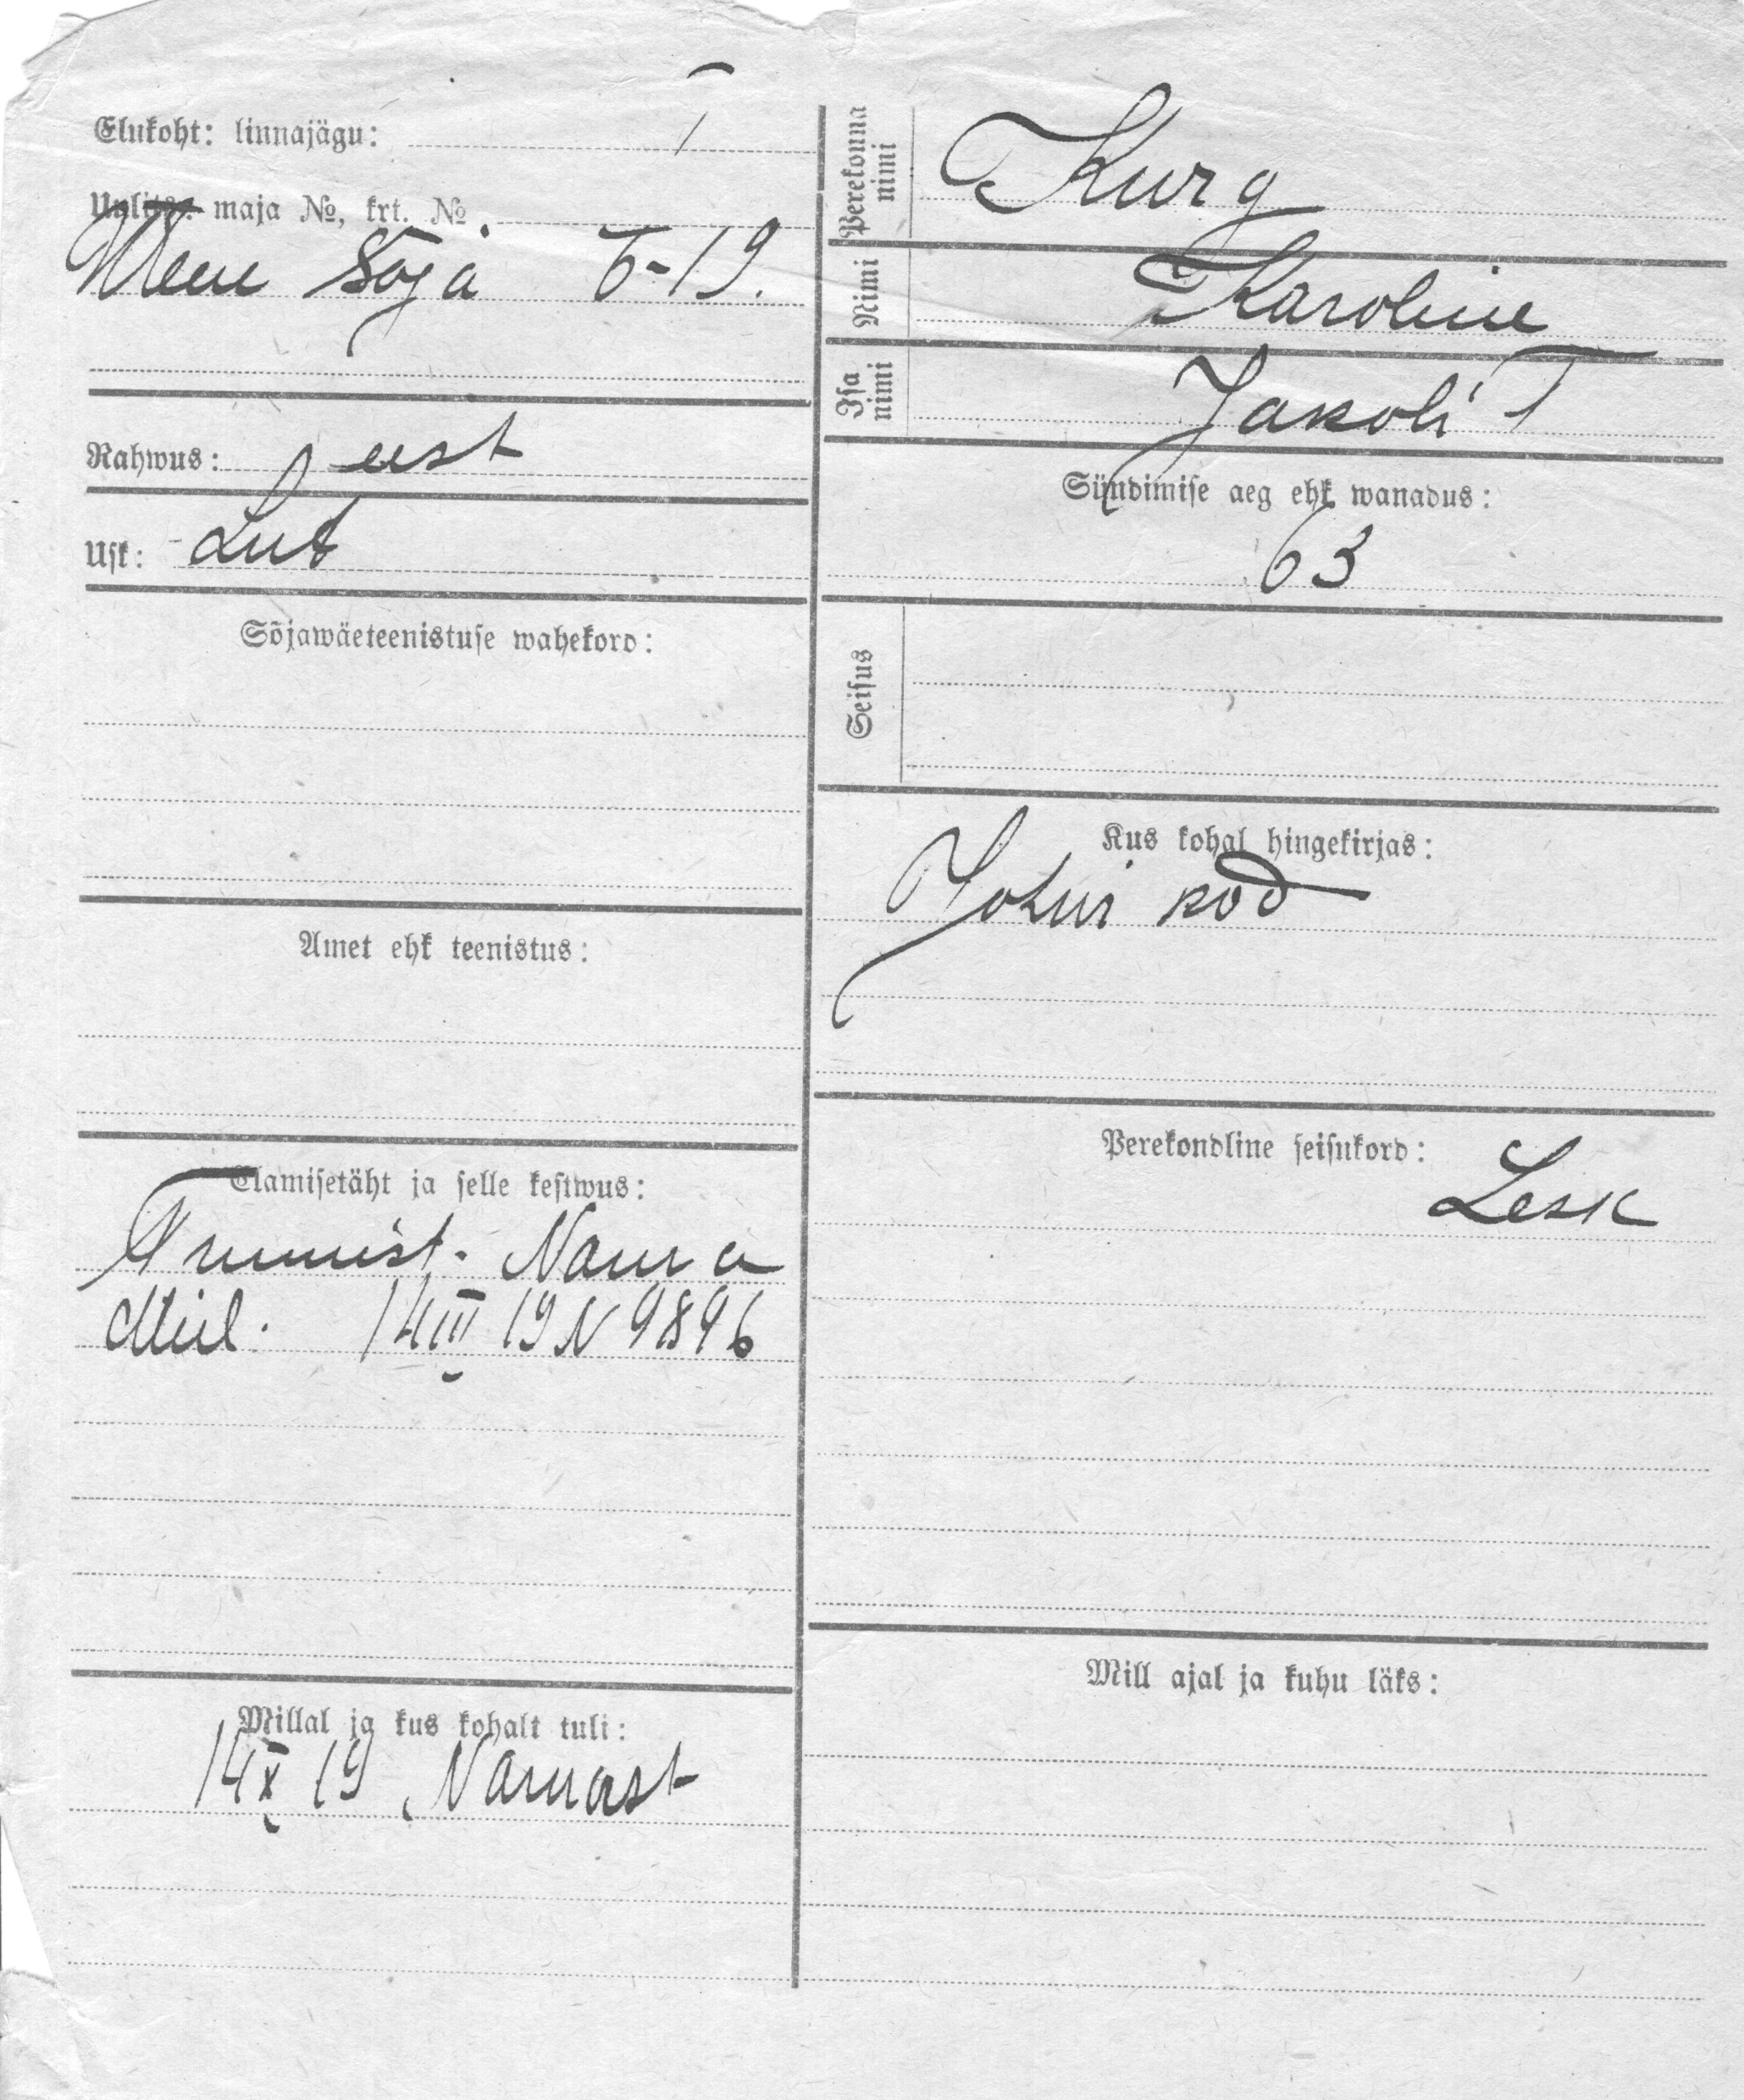 Elukoht: linnajägu: I
Uulits: maja №, krt. №
Wene Sõja 5-19.
Rahwus: eest
Usk: Lut
Sõjawäeteenistuse wahekord:
Amet ehk teenistus:
Elamisetäht ja selle kestwus:
Narva
Mil. 14 III 19 N 9896
Millal ja kus kohalt tuli:
14 X 19 Narvast
Perekonna
nimi
Kurg
Nimi
Karoline
Isa
nimi
Jakobi T
Sündimise aeg ehk wanadus:
63
Seisus
Kus kohal hingekirjas:
Johvi kod
Perekondline seisukord:
Lesk
Mill ajal ja kuhu läks: